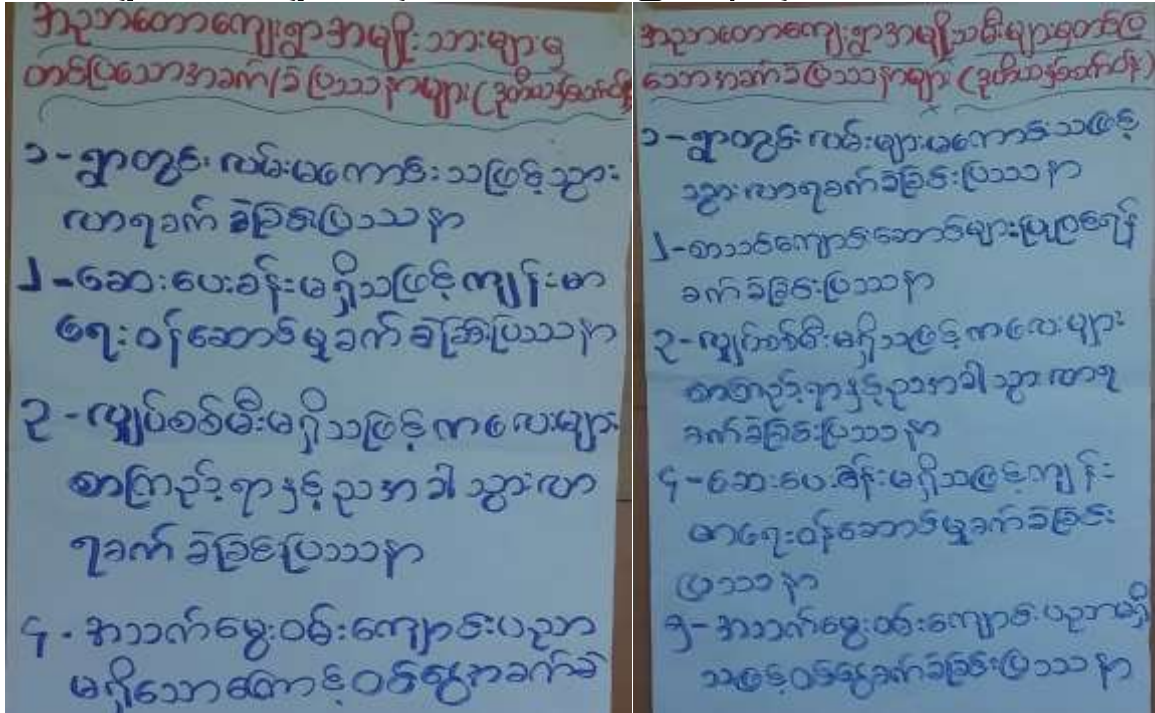 အညာတောကျေးရွာအမျိုးသားများမှ
တင်ပြသောအခက်/ခဲပြဿနာများ(ဒုတိယနှစ်ဝက်ဝန်
၁-ရွာတွင်းလမ်းမကောင်းသဖြင့်သွား
လာရခက်ခဲခြင်းပြဿနာ
၂-ဆေးပေးခန်းမရှိသဖြင့်ကျန်းမာ
ရေးဝန်ဆောင်မှုခက်ခဲခြင်းပြဿနာ
၃-လျှပ်စစ်မီးမရှိသဖြင့်ကလေးများ
စာကြည့်ရာနှင့်ညအခါသွားလာ
ရခက်ခဲခြင်းပြဿနာ
၄-အသက်မွေးဝမ်းကျောင်းပညာ
မရှိသောကြောင့်ဝင်ငွေအခက်ခဲ
အညာတောကျေးရွာအမျိုးသမီးများမှတင်ပြ
သောအခက်ခဲပြဿနာများ(ဒုတိယနှစ်ဝက်ဝန်)
၁-ရွာတွင်းလမ်းများမကောင်းသဖြင့်
သွားလာရခက်ခဲခြင်းပြဿနာ
၂-စာသင်ကျောင်းဆောင်များပြုပြင်ရန်
ခက်ခဲခြင်းပြဿနာ
၃-လျှပ်စစ်မီးမရှိသဖြင့်ကလေးများ
စာကြည့်ရာနှင့်ညအခါသွားလာရ
ခက်ခဲခြင်းပြဿနာ
၄-ဆေးပေးခန်းမရှိသဖြင့်ကျန်း
မာရေးဝန်ဆောင်မှုခက်ခဲခြင်း
ပြဿနာ
၅-အသက်မွေးဝမ်းကျောင်းပညာမရှိ
သဖြင့်ဝင်ငွေခက်ခဲခြင်းပြဿနာ